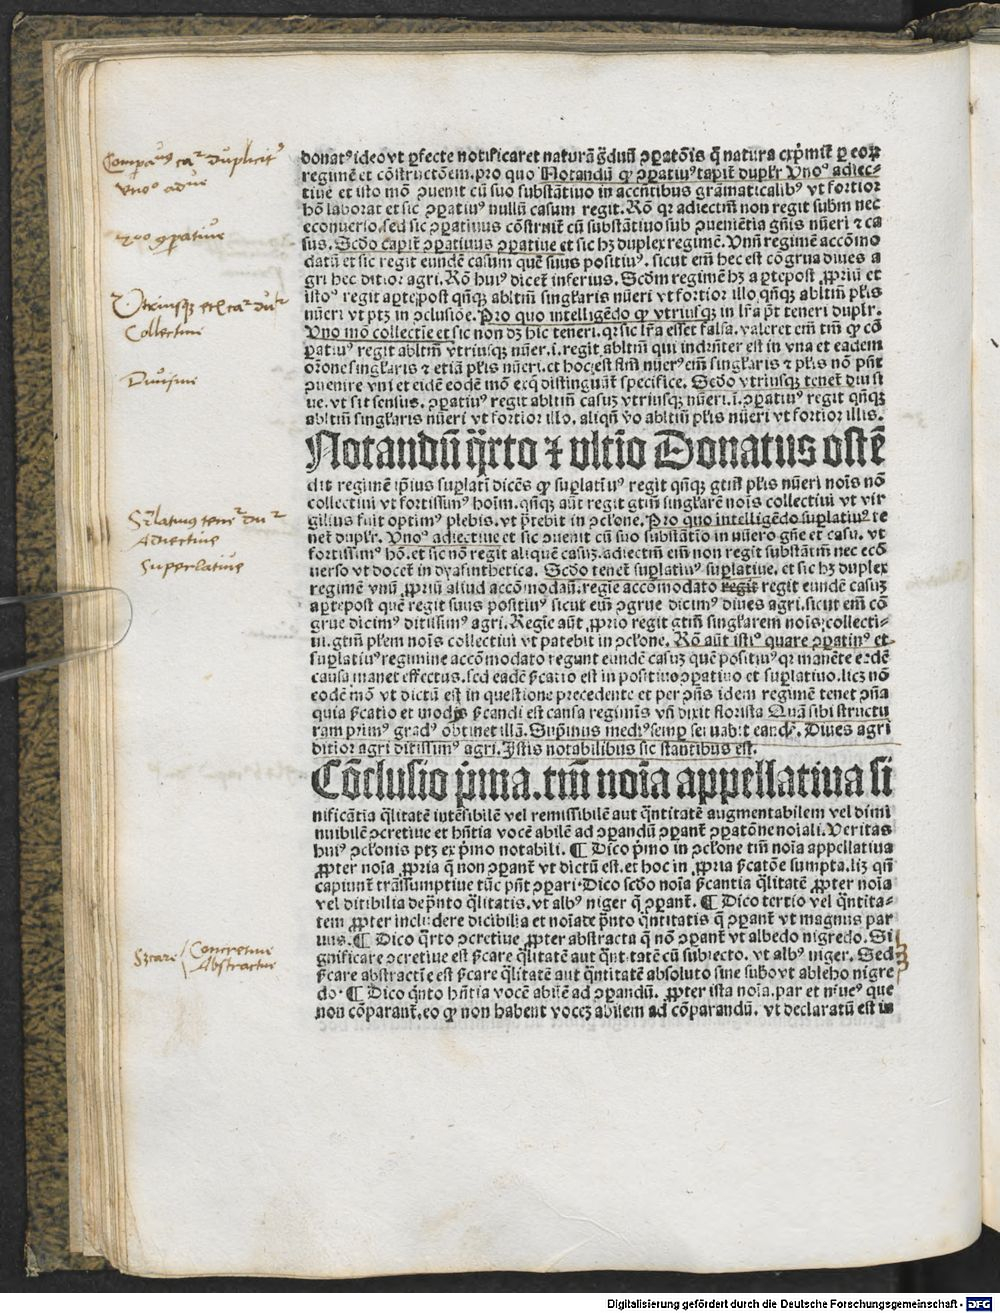 donatꝰ ideo vt ꝑfecte notificaret naturã g̃duũ ꝯꝑatõis q̃ natura exp̃mit᷑ ꝑ eoꝝ
regimẽ et cõstructõem. pro quo Notandũ ꝙ ꝯꝑatiuꝰ capit᷑ duplr̃ Vnoᵒ adiec⸗
tiue et isto mõ ꝯuenit cũ suo substãtiuo in accñtibus grãmaticalibꝰ vt fortior
hõ laborat et sic ꝯꝑatiuꝰ nullũ casum regit. Rõ qꝛ adiectm̃ non regit subm̃ nec
econuerso. sed sic ꝯꝑatiuus cõstruit᷑ cũ substãtiuo sub ꝯueniẽtia gñis nũeri ⁊ ca
sus. Scdo capit᷑ ꝯꝑatiuus ꝯꝑatiue et sic hꝫ duplex regimẽ. Vnũ regimẽ accõmo
datũ et sic regit eundẽ casum quẽ suus positiuꝰ. sicut em̃ hec est cõgrua diues a
gri hec ditior agri. Rõ huiꝰ dicet᷑ inferius. Scdm regimẽ hꝫ a ꝑtepost ꝓpriũ et
istoᵒ regit a ꝑtepost qñqꝫ abltm̃ singl̃aris nũeri vt fortior illo. qñqꝫ abltm̃ pl̃is
nũeri vt ptꝫ in ꝯclusiõe. Pro quo intelligẽdo ꝙ vtriusqꝫ in lr̃a pt᷑ teneri duplr̃.
Vno mõ collectie et sic non dꝫ hic teneri. qꝛ sic lr̃a esset falsa. valeret em̃ tm̃ ꝙ cõ
ꝑatiuꝰ regit abltm̃ vtriusqꝫ nũer. i. regit abltm̃ qui indrñter est in vna et eadem
or̃one singl̃aris ⁊ etiã pl̃is nũeri. et hoc est fl̃m nũerꝰ em̃ singl̃aris ⁊ pl̃is nõ pñt
ꝯuenire vni et eidẽ eodẽ mõ exq̃ distinguãt᷑ specifice. Scdo vtriusqꝫ tenet᷑ diuisi
ue. vt sit sensus. ꝯꝑatiuꝰ regit abltm̃ casuꝫ vtriusqꝫ nũeri. i. ꝯꝑatiuꝰ regit qñqꝫ
abltm̃ singl̃aris nũeri vt fortior illo. aliqñ ṽo abltm̃ pl̃is nũeri vt fortior illis.
Notandũ q̃rto ⁊ vltĩo Donatus ostẽ
dit regimẽ ip̃ius suꝑlati dicẽs ꝙ suꝑlatiuꝰ regit qñqꝫ gtm̃ pl̃is nũeri nois nõ
collectiui vt fortissimꝰ hoĩm. qñqꝫ aũt regit gtm̃ singl̃arẽ nois collectiui vt vir
gilius fuit optimꝰ plebis. vt p̃tebit in ꝯclõne. Pro quo intelligẽdo suꝑlatiuꝰ te
net᷑ duplr̃. Vnoᵒ adiectiue et sic ꝯuenit cũ suo substãtio in nũero gñe et casu. vt
fortissimꝰ hõ. et sic nõ regit aliquẽ casuꝫ. adiectm̃ em̃ non regit substãtm̃ nec ecõ
uerso vt docet᷑ in dyasinthetica. Scdo tenet᷑ suꝑlatiuꝰ suꝑlatiue. et sic hꝫ duplex
regimẽ vnũ ꝓpriũ aliud accõmodatũ. regie accõmodato regit regit eundẽ casuꝫ
a ꝑtepost quẽ regit suus positiuꝰ sicut em̃ ꝯgrue dicimꝰ diues agri. sicut em̃ cõ
grue dicimꝰ ditissimꝰ agri. Regie aũt ꝓprio regit gtm̃ singl̃arem nois collecti⸗
ui. gtm̃ pl̃em nois collectiui vt patebit in ꝯclõne. Rõ aũt istiꝰ quare ꝯꝑatiuꝰ et
suꝑlatiuꝰ regimine accõmodato regunt eundẽ casuꝫ quẽ positiuꝰ qꝛ manẽte eadẽ
causa manet effectus. sed eadẽ ẜcatio est in positiuo ꝯꝑatiuo et suꝑlatiuo. licꝫ nõ
eodẽ mõ vt dictũ est in questione precedente et per ꝯñs idem regimẽ tenet᷑ ꝯña
quia ẜcatio et modꝰ ẜcandi est causa regimĩs vñ dixit florista Quã sibi structu
ram primꝰ gradꝰ obtinet illã. Supimus mediꝰ semp seruabit eandẽ. Diues agri
ditior agri ditissimꝰ agri. Istis notabilibus sic stantibus est.
Cõclusio p̃ma. tm̃ noĩa appellatiua si
nificãtia q̃litatẽ intẽsibilẽ vel remissibilẽ aut q̃ntitatẽ augmentabilem vel dimi
nuibilẽ ꝯcretiue et hñtia vocẽ abilẽ ad ꝯꝑandũ ꝯꝑant᷑ ꝯꝑatõne noiali. Veritas
huiꝰ ꝯclonis ptꝫ ex p̃mo notabili. ¶ Dico p̃mo in ꝯclone tm̃ noĩa appellatiua
ꝓpter noĩa ꝓpria q̃ non ꝯꝑant᷑ vt dictũ est. et hoc in ꝓpria ẜcatõe sumpta. lꝫ qñ
capiunt᷑ trãssumptiue tũc pñt ꝯꝑari. Dico scdo noĩa ẜcantia q̃litatẽ ꝓpter noĩa
vel dicibilia dep̃nto q̃litatis. vt albꝰ niger q̃ ꝯꝑant᷑. ¶ Dico tertio vel q̃ntita⸗
tem ꝓpter includere dicibilia et noĩa de p̃nto q̃ntitatis q̃ ꝯꝑant᷑ vt magnus par
uus. ¶ Dico q̃rto ꝯcretiue ꝓpter abstracta q̃ nõ ꝯꝑant᷑ vt albedo nigredo. Si
gnificare ꝯcretiue est ẜcare q̃litatẽ aut q̃ntitatẽ cũ subiecto. vt albꝰ niger. Sed
ẜcare abstractie est ẜcare q̃litatẽ aut q̃ntitatẽ absoluto sine subo vt ableho nigre
do. ¶ Dico q̃nto hñtia vocẽ abilẽ ad ꝯꝑandũ. ꝓpter ista noĩa. par et niueꝰ que
non cõparant᷑. eo ꝙ non habent voceꝫ abilem ad cõparandũ. vt declaratũ est in
Collectiue
Diuisiue
Adiectiue
Superlatiue
Concretiue
Abstractiue
Digitalisierung gefördert durch die Deutsche Forschungsgemeinschaft - DFG